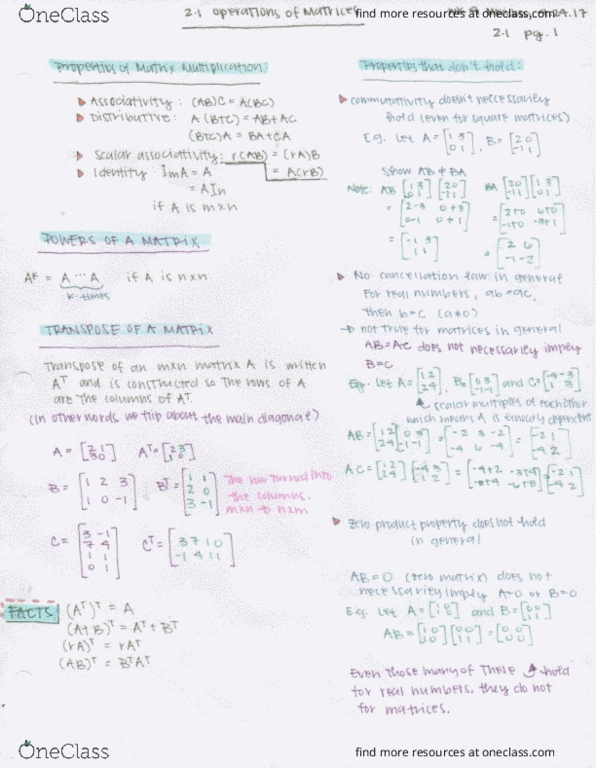 OneClass
2.1 operations of Matrices
find more resources at oneclass.com
24.17
2.1 pg. 1
Properties of Matrix Multiplication:
Associativity: (AB)C = A(BC)
Distributive: A(B+C) = AB+AC
(B+C)A = BA+CA
Scalar associativity: r(AB) = (rA)B
= A(rB)
Identity: ImA = A
= AIn
if A is mxn
POWERS OF A MATRIX
A^K = A ... A if A is nxn
k-times
TRANSPOSE OF A MATRIX
Transpose of an mxn matrix A is written
A^T and is constructed so the rows of A
are the columns of A^T.
(in other words we flip about the main diagonal)
A = [2 1; 3 0] A^T = [2 3; 1 0]
B = [1 2 3; 1 0 -1] B^T = [1 1; 2 0; 3 -1]
The row turned into
the columns.
mxn → nxm
C = [3 -1; 7 4; 1 1; 0 1] C^T = [3 7 1 0; -1 4 1 1]
FACTS
(A^T)^T = A
(A+B)^T = A^T + B^T
(rA)^T = rA^T
(AB)^T = B^T A^T
Properties that don't hold:
commutativity doesn't neccessarily
hold (even for square matrices)
E.g. Let A = [1 3; 0 1], B = [2 0; -1 1]
Show AB ≠ BA
Note: AB [1 3; 0 1] [2 0; -1 1] BA [2 0; -1 1] [1 3; 0 1]
= [2-3 0+3; 0-1 0+1] = [2+0 6+0; -1+0 -3+1]
= [-1 3; -1 1] = [2 6; -1 -2]
No cancellation law in general
For real numbers, ab=ac,
then b=c (a≠0)
→ not true for matrices in general
AB=AC does not necessarily imply
B=C
E.g. Let A = [1 2; 2 4], B = [0 3; -1 -1] and C = [-4 -3; 1 3]
scalar multiples of each other
which means A is linearly dependent
AB = [1 2; 2 4] [0 3; -1 -1]
AC = [1 2; 2 4]
Zero product property does not hold
in general
AB=0 (zero matrix) does not
necessarily imply A=0 or B=0
E.g. Let A = and B = [0 0; 1 1]
AB = [0 0; 1 1] = [0 0; 0 0]
Even those many of these hold
for real numbers, they do not
for matrices.
OneClass
find more resources at oneclass.com